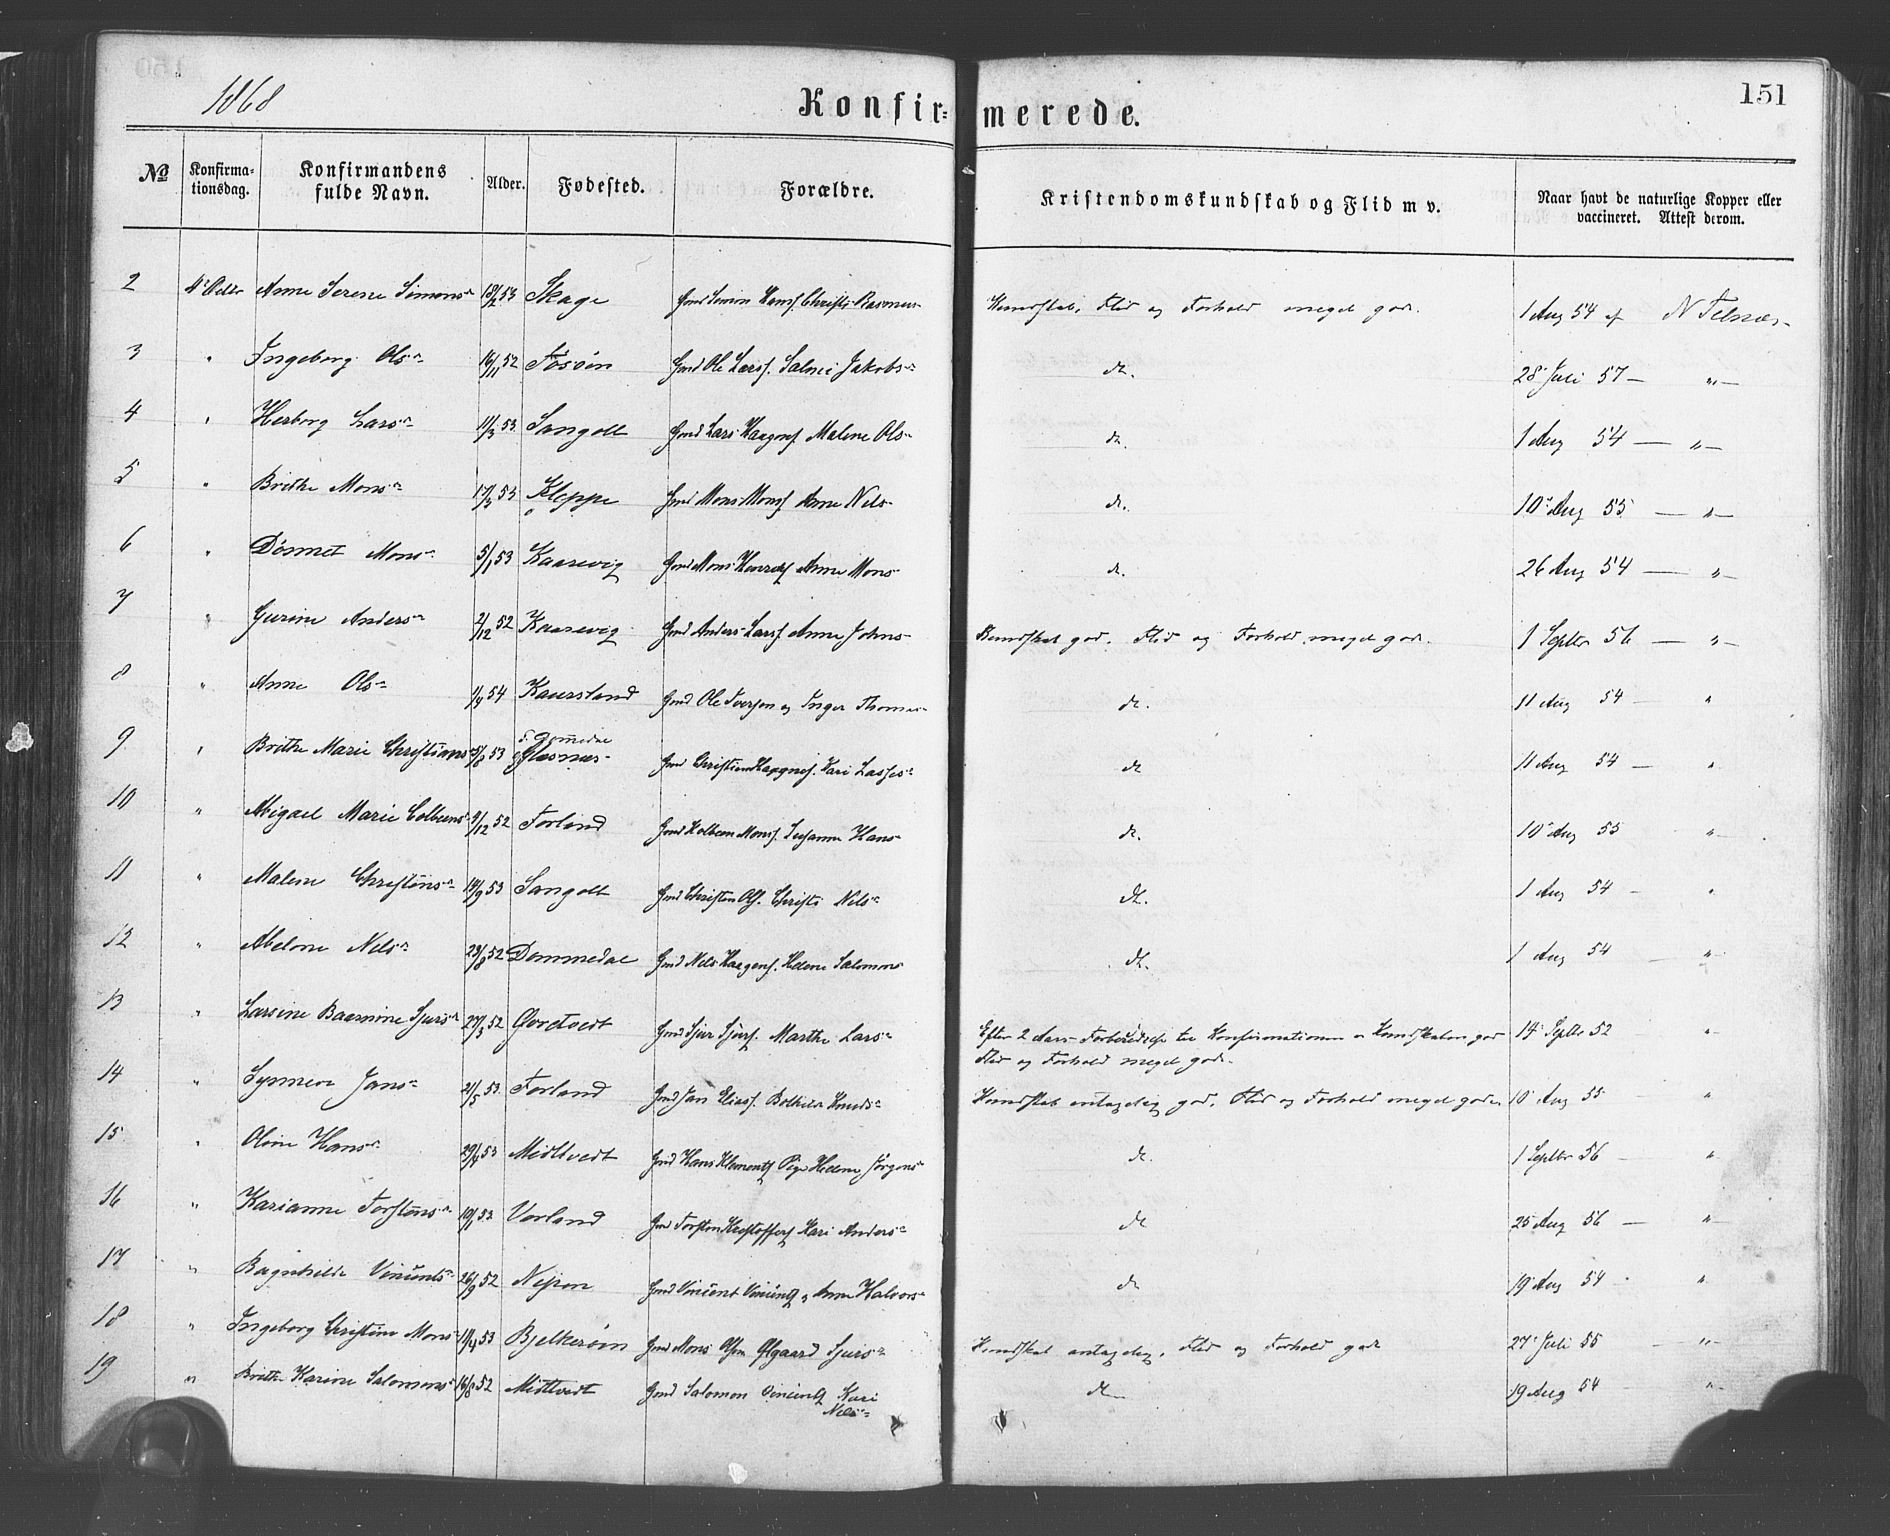 1868
Konfirmerede.
151
No
Konfirmationsdag.
Konfirmandens fulde Navn.
Alder.
Fødested.
Forældre.
Kristendomskundskab og Flid m v.
Naar havt de naturlige Kopper eller vaccineret. Attest derom.
2 4de Oktbr Anne Serene Simons 18/2 53 Skage Gmd Simon Hans. Christi Rasmus Kundskab, Flid og Forhold meget god. 1 Aug 54 af N Telnæs
3 " Ingeborg Ols 16/11 52 Tosøen Gmd Ole Larss. Salmi Jakobs do. 28 Juli 57 — " —
4 " Herborg Lars 11/3 53 Sangolt Gmd Lars Haagns. Malene Ols do. 1 Aug 54 — " —
5 " Brithe Mons 17/3 53 Kleppe Gmd Mons Mons. Anne Nels do. 10 Aug 55 — " —
6 " Dønnet Mons 5/1 53 Kaarevig Gmd Mons Anne Mons do. 26 Aug 54 — " —
7 " Gurine Anders 2/12 52 Kaarevig Gmd Anders Larss. Anne Johns Kundskab god. Flid og Forhold meget god. 1 Septbr 56 — " —
8 " Anne Ols 1/9 54 Kaursland Gmd Ole Iversen og Inger Thomas do. 11 Aug 54 — "
9 " Brithe Marie Christians 53 Glæsnæs Gmd Christian Haagns. Kari Lasses do 11 Aug 54 — "
10 " Abigael Marie Colbens 9/12 52 Forland Gmd Kolben Mons. Susanne Hans do. 10 Aug 55 "
11 " Malene Christens 14/9 53 Sangolt Gmd Christen Ols. Christi Nels do. 1 Aug 54 — "
12 " Abelone Nels 23/8 52 Dommedal Gmd Nels Haagens. Helene Salomons do. 1 Aug 54 — "
13 " Larsine Baarnine Sjurs 27/3 52 Qvretvedt Gmd Sjur Sjurs. Marthe Lars Efter 2 Aars Forberedelse til Konfirmationen er Kundskaben god 14 Septbr 52 "
Flid og Forhold meget god.
14 " Synneva Jans 21/5 53 Forland Gmd Jan Elias. Bothilda Knuds Kundskab antagelig god. Flid og Forhold meget god. 10 Aug 55 "
15 " Oline Hans 29/4 53 Midttvedt Gmd Hans Klements. Pige Helene Jørgens do. 1 Septbr 56 — "
16 " Karianne Torstens 10/1 53 Vorland Gmd Torsten Kristoffers. Kari Anders do 25 Aug 56 — "
17 " Ragnhilde Vincents 26/9 52 Nipen Gmd Vincent Vincents. og Anne Halvors do 19 Aug 54 "
18 " Ingeborg Christine Mons 11/4 53 Bjelkerøen Gmd Mons Ølgaard Sjurs Kundskab antagelig, Flid og Forhold god 27 Juli 55 — "
19 " Brithe Karine Salomons 16/8 52 Midttvedt Gmd Salomon Vincents. Kari do 19 Aug 54 — "
Nels